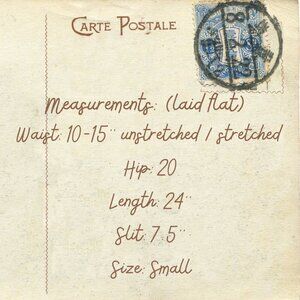 CARTE POSTALE
Measurements: (laid flat)
Waist: 10-15" unstretched / stretched
Hip: 20
Length: 24"
Slit: 7.5"
Size: Small